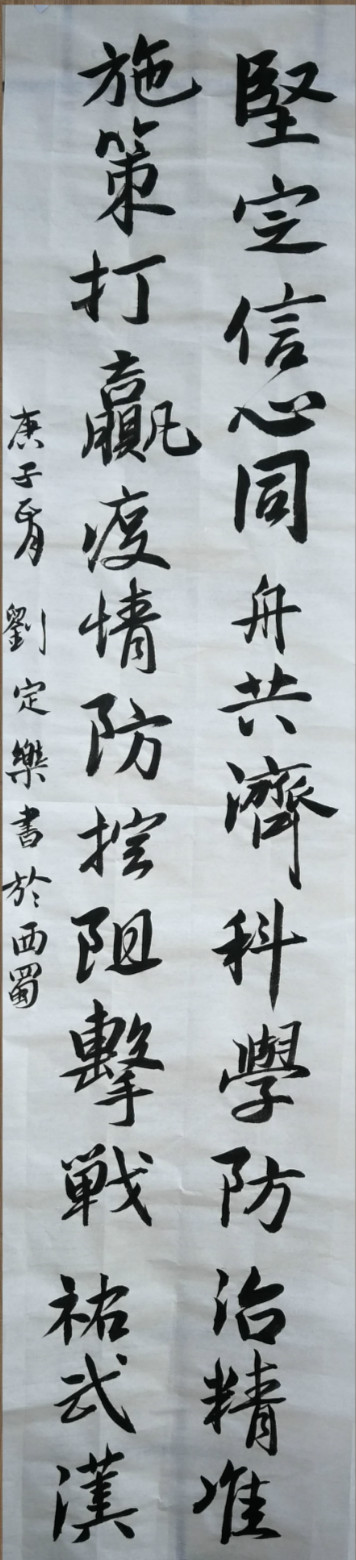 堅定信心同舟共濟科學防治精准
施策打贏疫情防控阻擊戰祐武漢
庚子春劉定樂書於西蜀